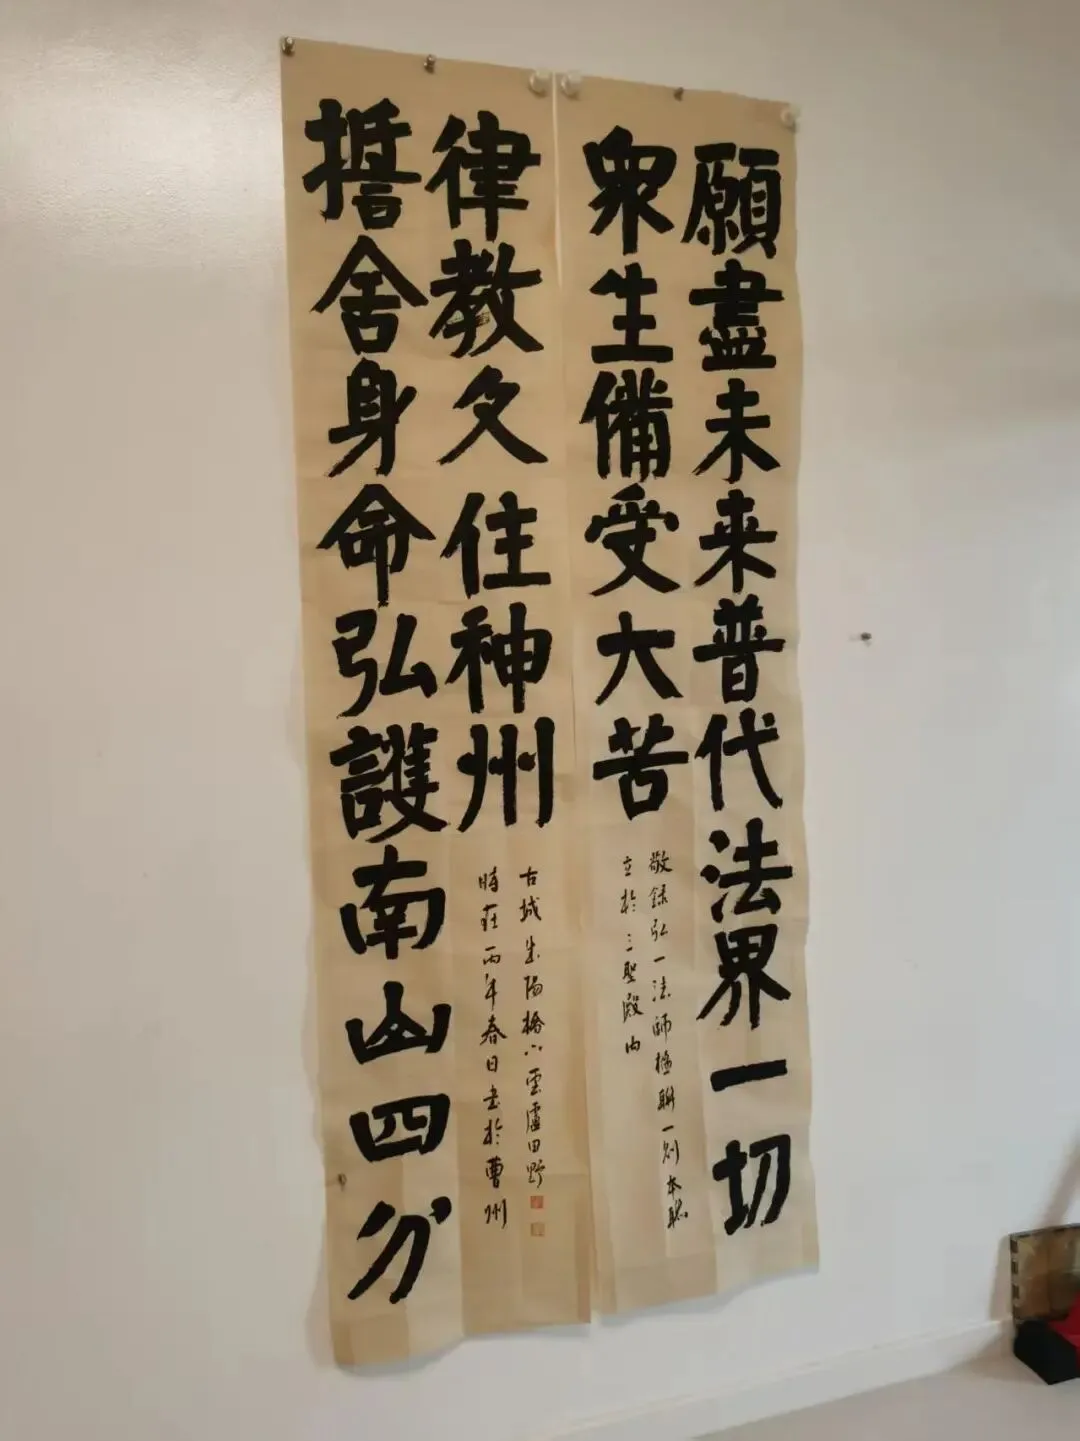 願盡未来普代法界一切
衆生備受大苦
敬録弘一法師楹聯一則本聯
立於三聖殿内
誓舍身命弘護南山四分
律教久住神州
古城朱陽橋八雲廬田野
時在丙年春日书於曹州